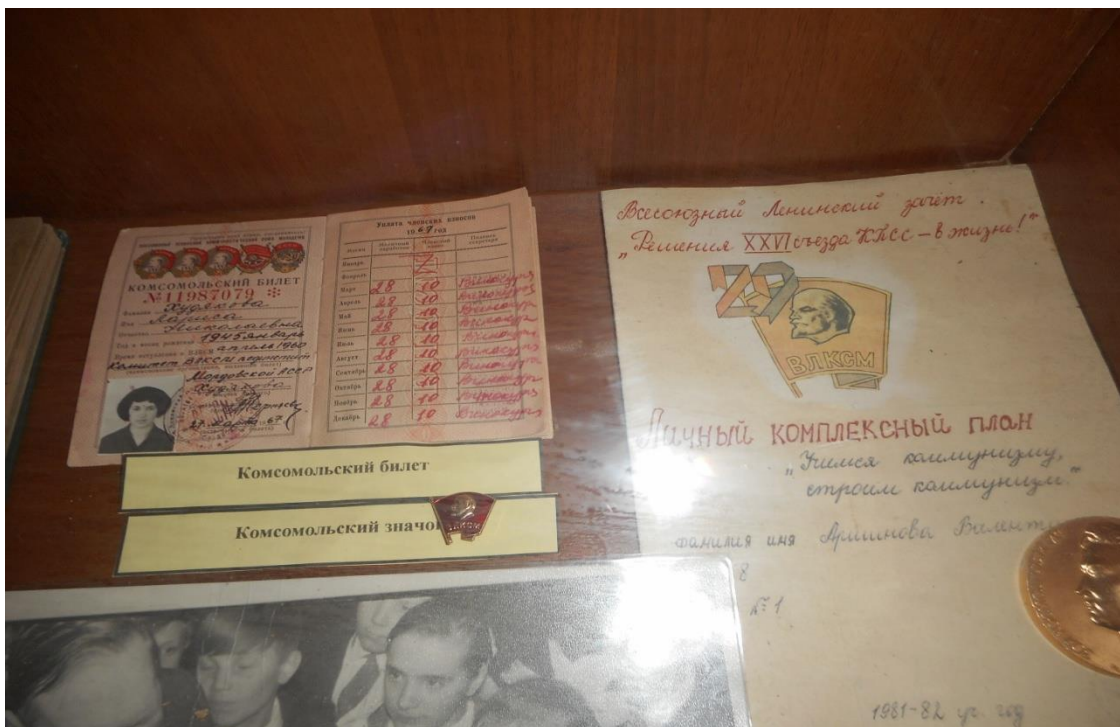 КОМСОМОЛЬСКИЙ БИЛЕТ
№11987079
Фамилия Худякова
Имя Лариса
Отчество Николаевна
Год и месяц рождения 1945 январь
Время вступления в ВЛКСМ апрель 1960
Комитет ВЛКСМ
Мордовской АССР
Худякова
27 марта 67
Уплата членских взносов
1967 год
Месяц Месячный заработок Членский взнос Подпись секретаря
Январь
Февраль
Март 28 10
Апрель 28 10
Май 28 10
Июнь 28 10
Июль 28 10
Август 28 10
Сентябрь 28 10
Октябрь 28 10
Ноябрь 28 10
Декабрь 28 10
Комсомольский билет
Комсомольский значо
ВЛКСМ
Всесоюзный Ленинский зачёт.
„Решения XXVI съезда КПСС – в жизнь!"
ВЛКСМ
Личный комплексный план
„Учимся коммунизму,
строим коммунизм."
фамилия имя
8
№ 1
1981-82 уч. год